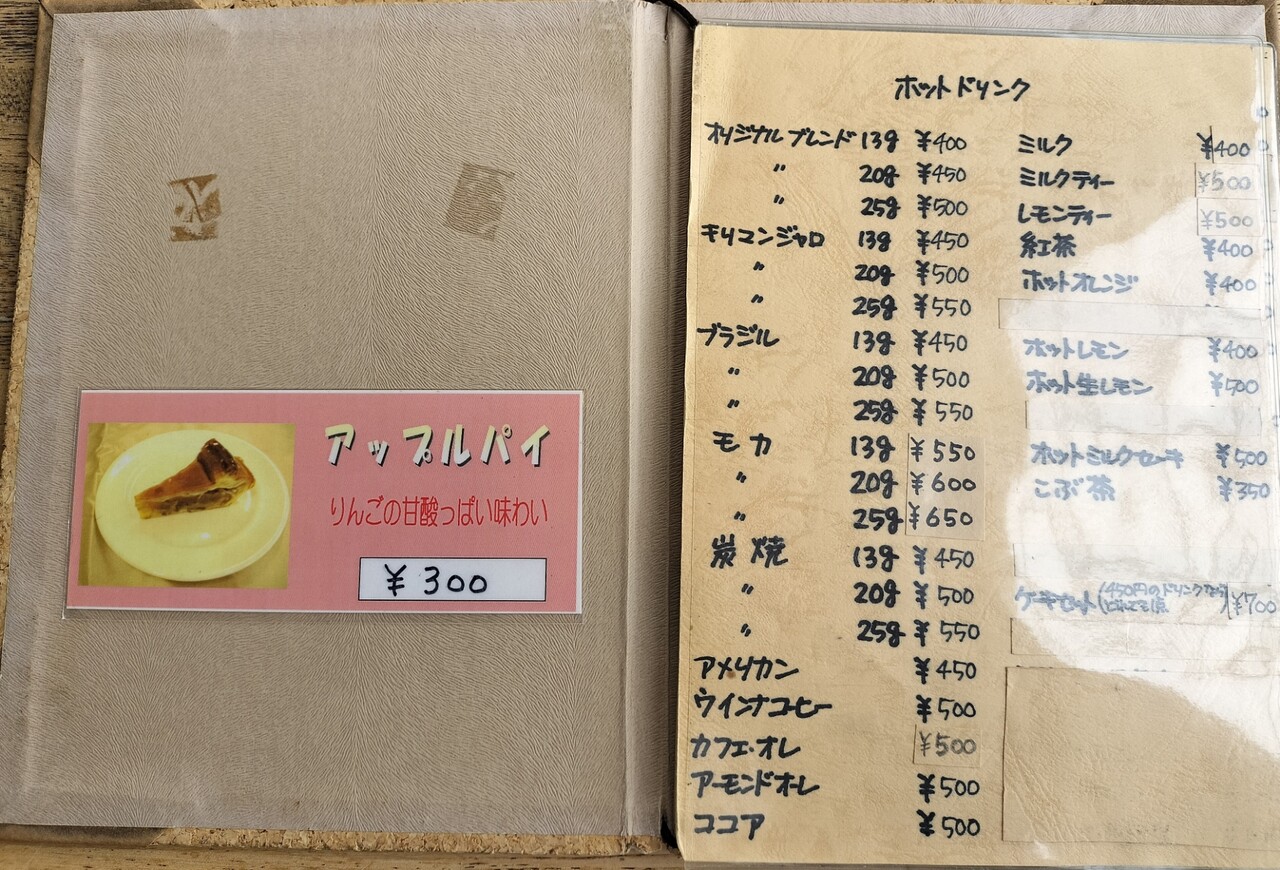 アップルパイ
りんごの甘酸っぱい味わい
¥300
ホットドリンク
オリジナルブレンド 13g ¥400
〃 20g ¥450
〃 25g ¥500
キリマンジャロ 13g ¥450
〃 20g ¥500
〃 25g ¥550
ブラジル 13g ¥450
〃 20g ¥500
〃 25g ¥550
モカ 13g ¥550
〃 20g ¥600
〃 25g ¥650
炭焼 13g ¥450
〃 20g ¥500
〃 25g ¥550
アメリカン ¥450
ウインナコーヒー ¥500
カフェ・オレ ¥500
アーモンドオーレ ¥500
ココア ¥500
ミルク ¥400
ミルクティー ¥500
レモンティー ¥500
紅茶 ¥400
ホットオレンジ ¥400
ホットレモン ¥400
ホット生レモン ¥500
ホットミルクセーキ ¥500
こぶ茶 ¥350
ケーキセット (450円のドリンクなら ¥700